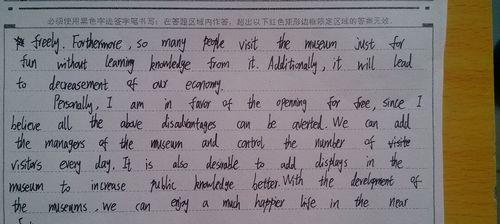 必须使用黑色字迹签字笔书写；在答题区域内作答，超出以下红色矩形边框限定区域的答案无效。
freely. Forthermore, so many people visit the museum just for
fun without learning knowledge from it. Additionally, it will lead
to decreasement of our economy.
Personally, I am in favor of the openning for free, since I
believe all the above disadvantages can be averted. We can add
the managers of the museum and control the number of visite
visitors every day. It is also desirable to add displays in the
museum to increase public knowledge better. With the development of
the museums, we can enjoy a much happier life in the near